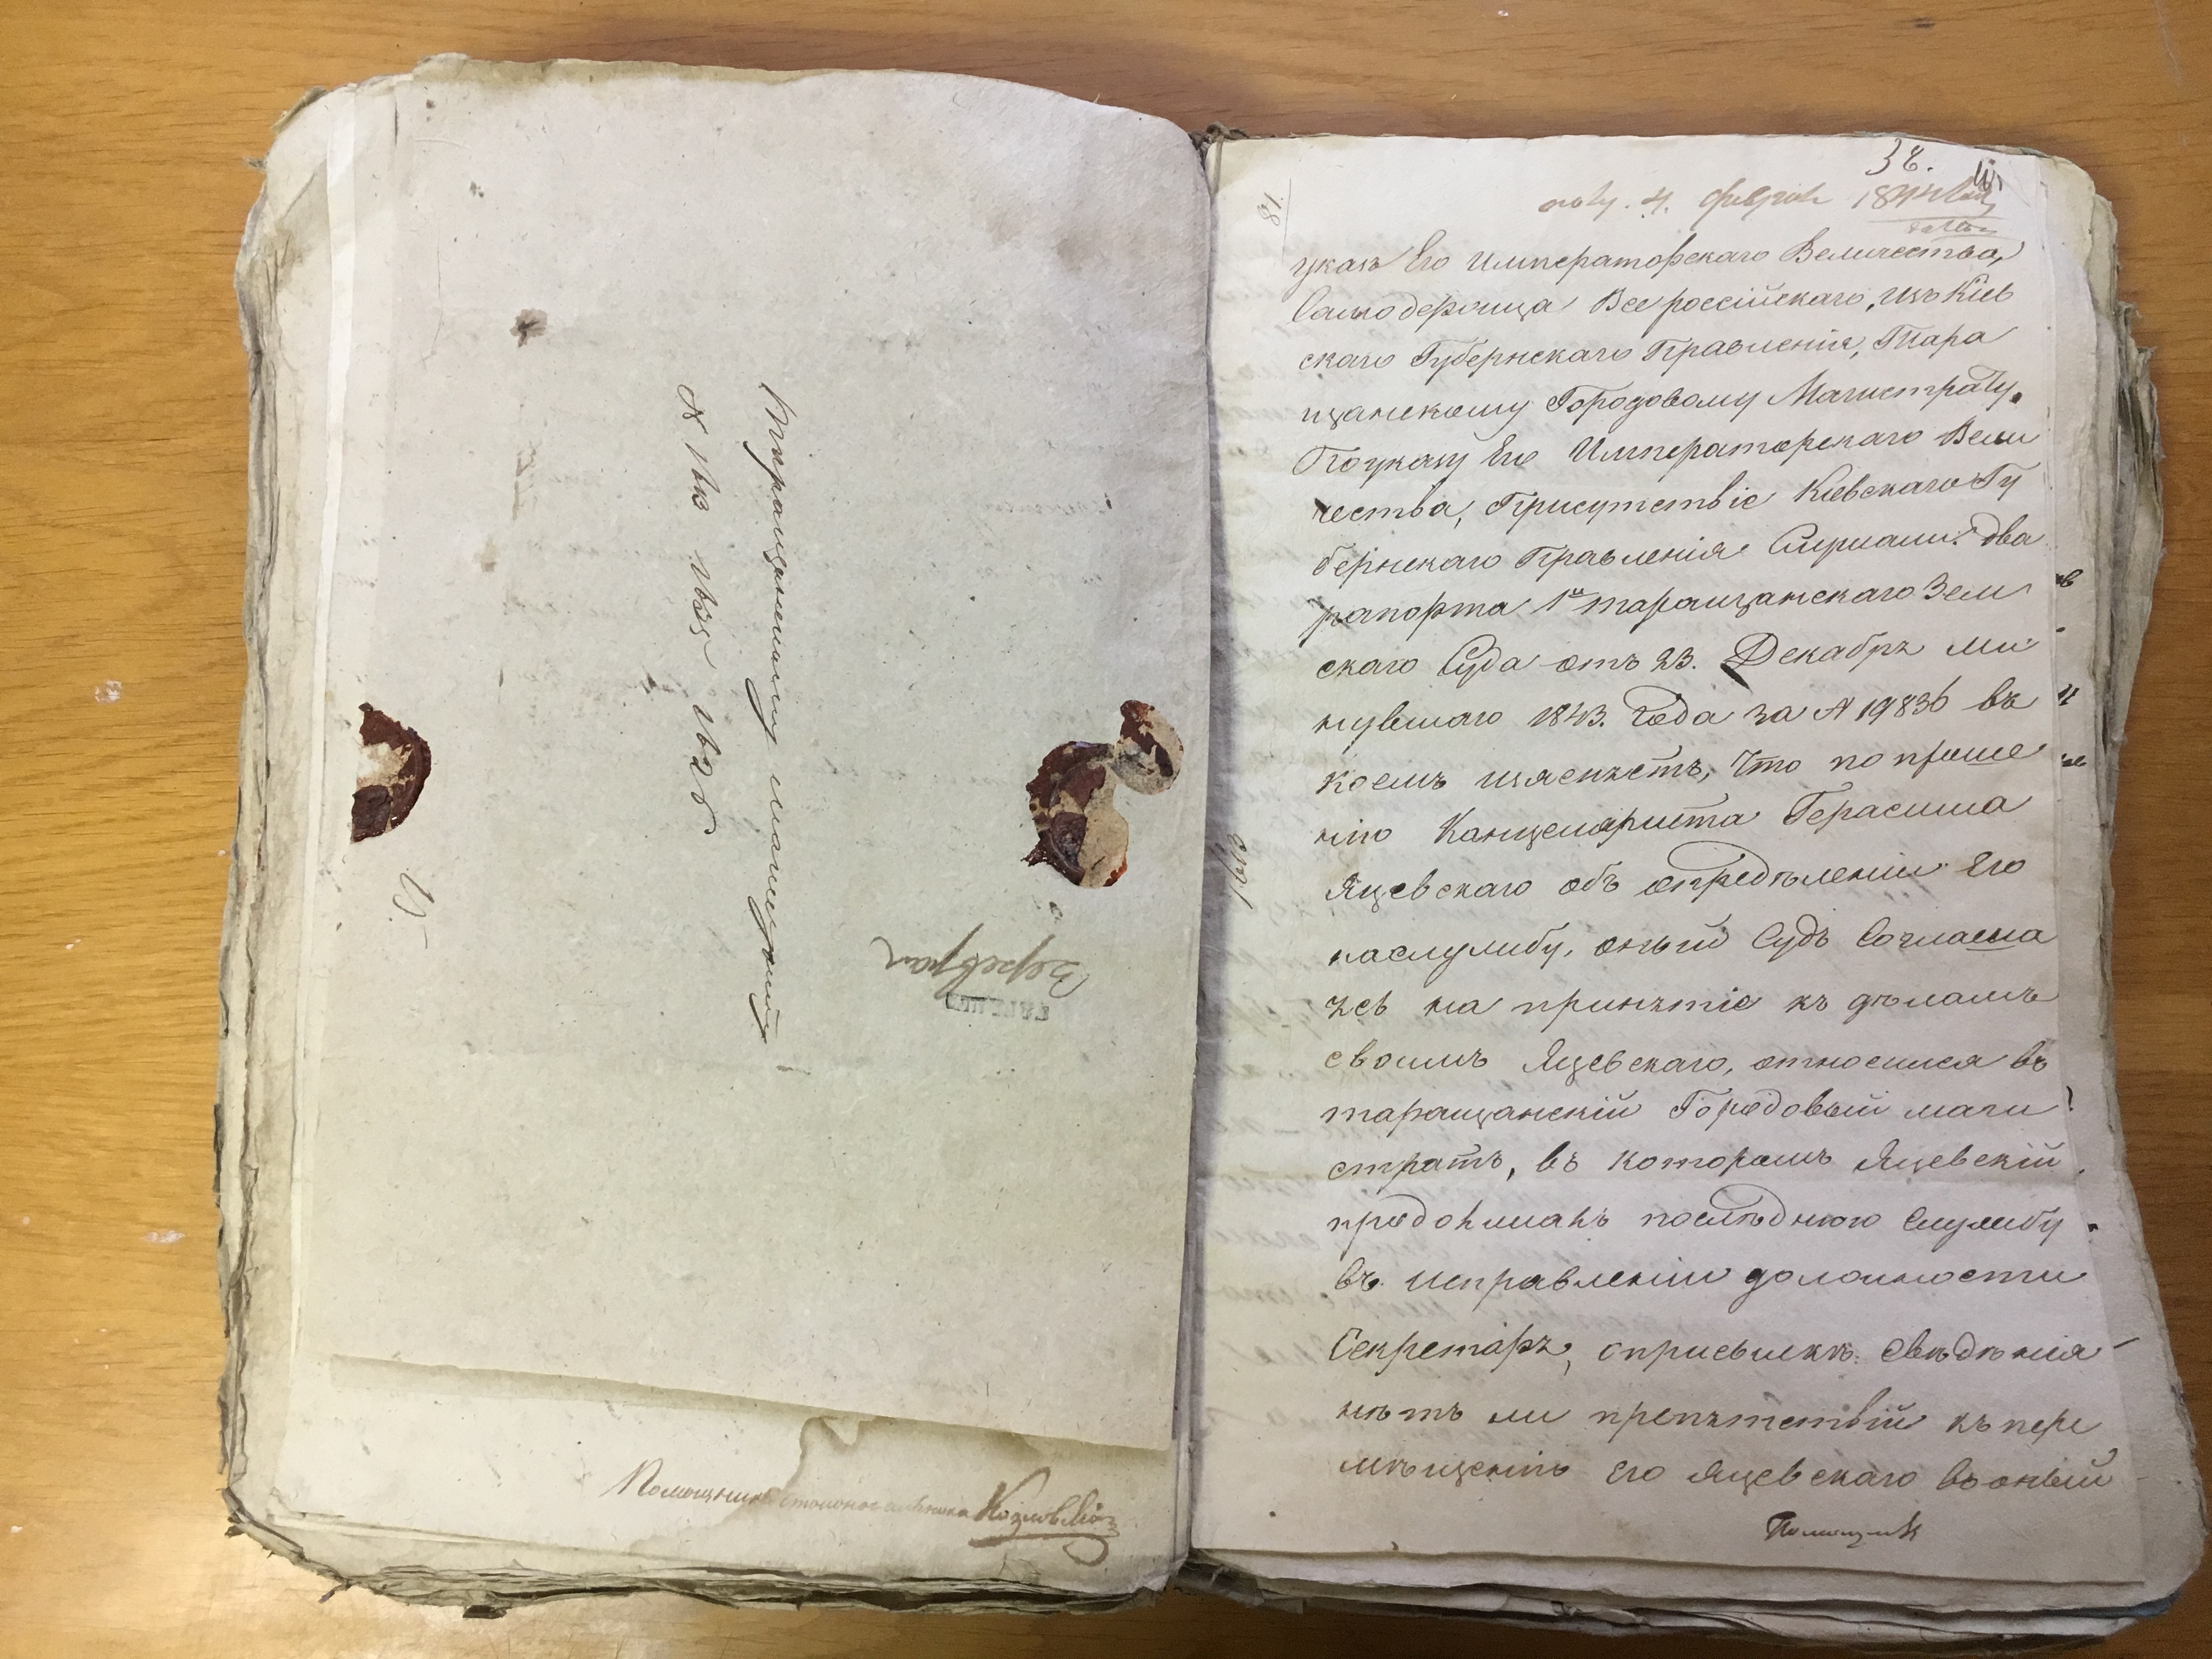 Таращанскому магистрату
№ 1613 1635 1626
Помощникъ столоначальника Козловскій
38.
полу. 4. февраля 1844
указъ Его Императорскаго Величества,
Самодержца Всероссійскаго, изъ Кіев
скаго Губернскаго Правленія, Тара
щанскому Городовому Магистрату.
По указу Его Императорскаго Вели
чества, Присутствіе Кіевскаго Гу
бернскаго Правленія Слушали: два
рапорта 1й таращанскаго Зем
скаго Суда отъ 23. Декабря ми
нувшаго 1843. Года за № 19836 въ
коемъ изясняетъ, что по проше
нію Канцеляриста Герасима
Яцевскаго объ определеніи Его
наслужбу, оный Судъ Соглаша
ясь на принятіе къ деламъ
своимъ Яцевскаго, относился въ
таращанскій Городовый маги
стратъ, въ которомъ Яцевскій
продолжалъ последнюю Службу
въ исправленіи должности
Секретаря, о присылке Сведенія
нетъ ли препятствій къ пере
мещенію Его Яцевскаго въ оный
Помощник